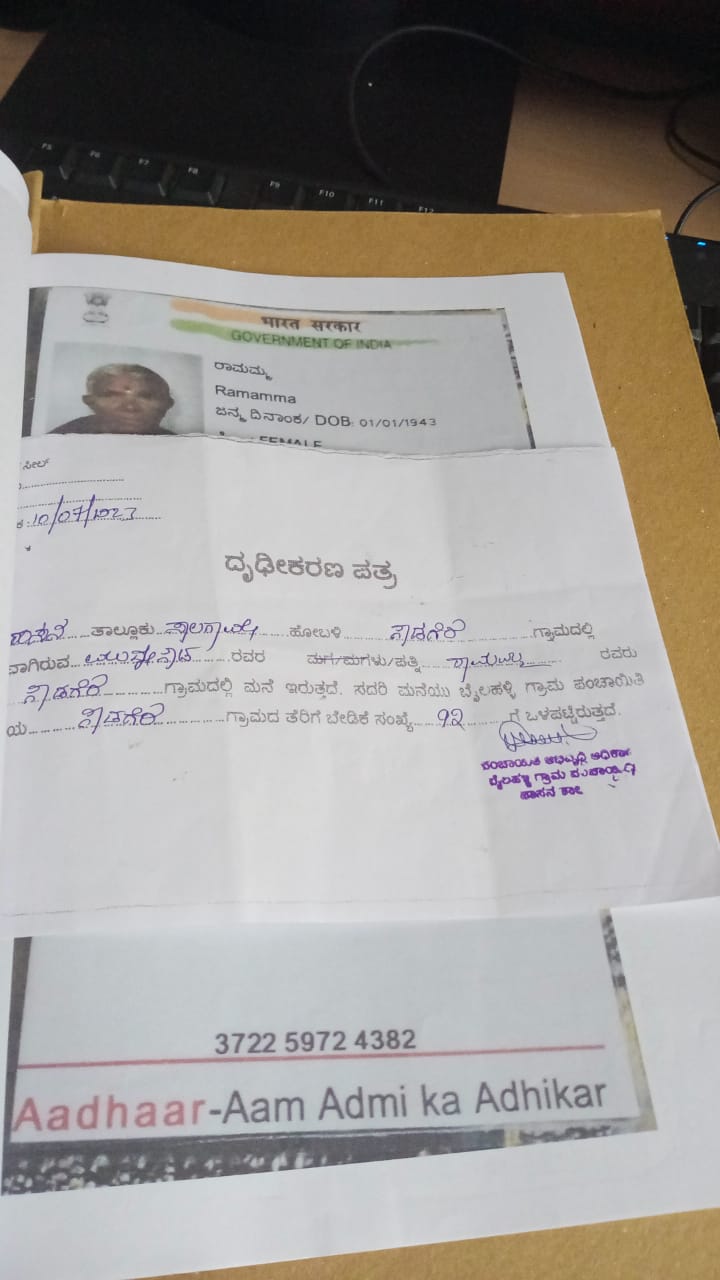 F5 F6 F7 F8 F9 F10 F11 F12
भारत सरकार
GOVERNMENT OF INDIA
ರಾಮಮ್ಮ
Ramamma
ಜನ್ಮ ದಿನಾಂಕ/ DOB: 01/01/1943
FEMALE
ಸೀಲ್
10/07/2023
ದೃಢೀಕರಣ ಪತ್ರ
ಹಾಸನ ತಾಲ್ಲೂಕು ಸಾಲಗಾಮೆ ಹೋಬಳಿ ಗ್ರಾಮದಲ್ಲಿ
ವಾಗಿರುವ ರವರ ಮಗ/ಮಗಳು/ಪತ್ನಿ ರಾಮಮ್ಮ ರವರು
ಗ್ರಾಮದಲ್ಲಿ ಮನೆ ಇರುತ್ತದೆ. ಸದರಿ ಮನೆಯು ಬೈಲಹಳ್ಳಿ ಗ್ರಾಮ ಪಂಚಾಯಿತಿ
ಯ ಗ್ರಾಮದ ತೆರಿಗೆ ಬೇಡಿಕೆ ಸಂಖ್ಯೆ 92 ಗೆ ಒಳಪಟ್ಟಿರುತ್ತದೆ.
ಪಂಚಾಯತಿ ಅಭಿವೃದ್ಧಿ ಅಧಿಕಾರಿ
ಬೈಲಹಳ್ಳಿ ಗ್ರಾಮ ಪಂಚಾಯ್ತಿ
ಹಾಸನ ತಾಃ
3722 5972 4382
Aadhaar-Aam Admi ka Adhikar